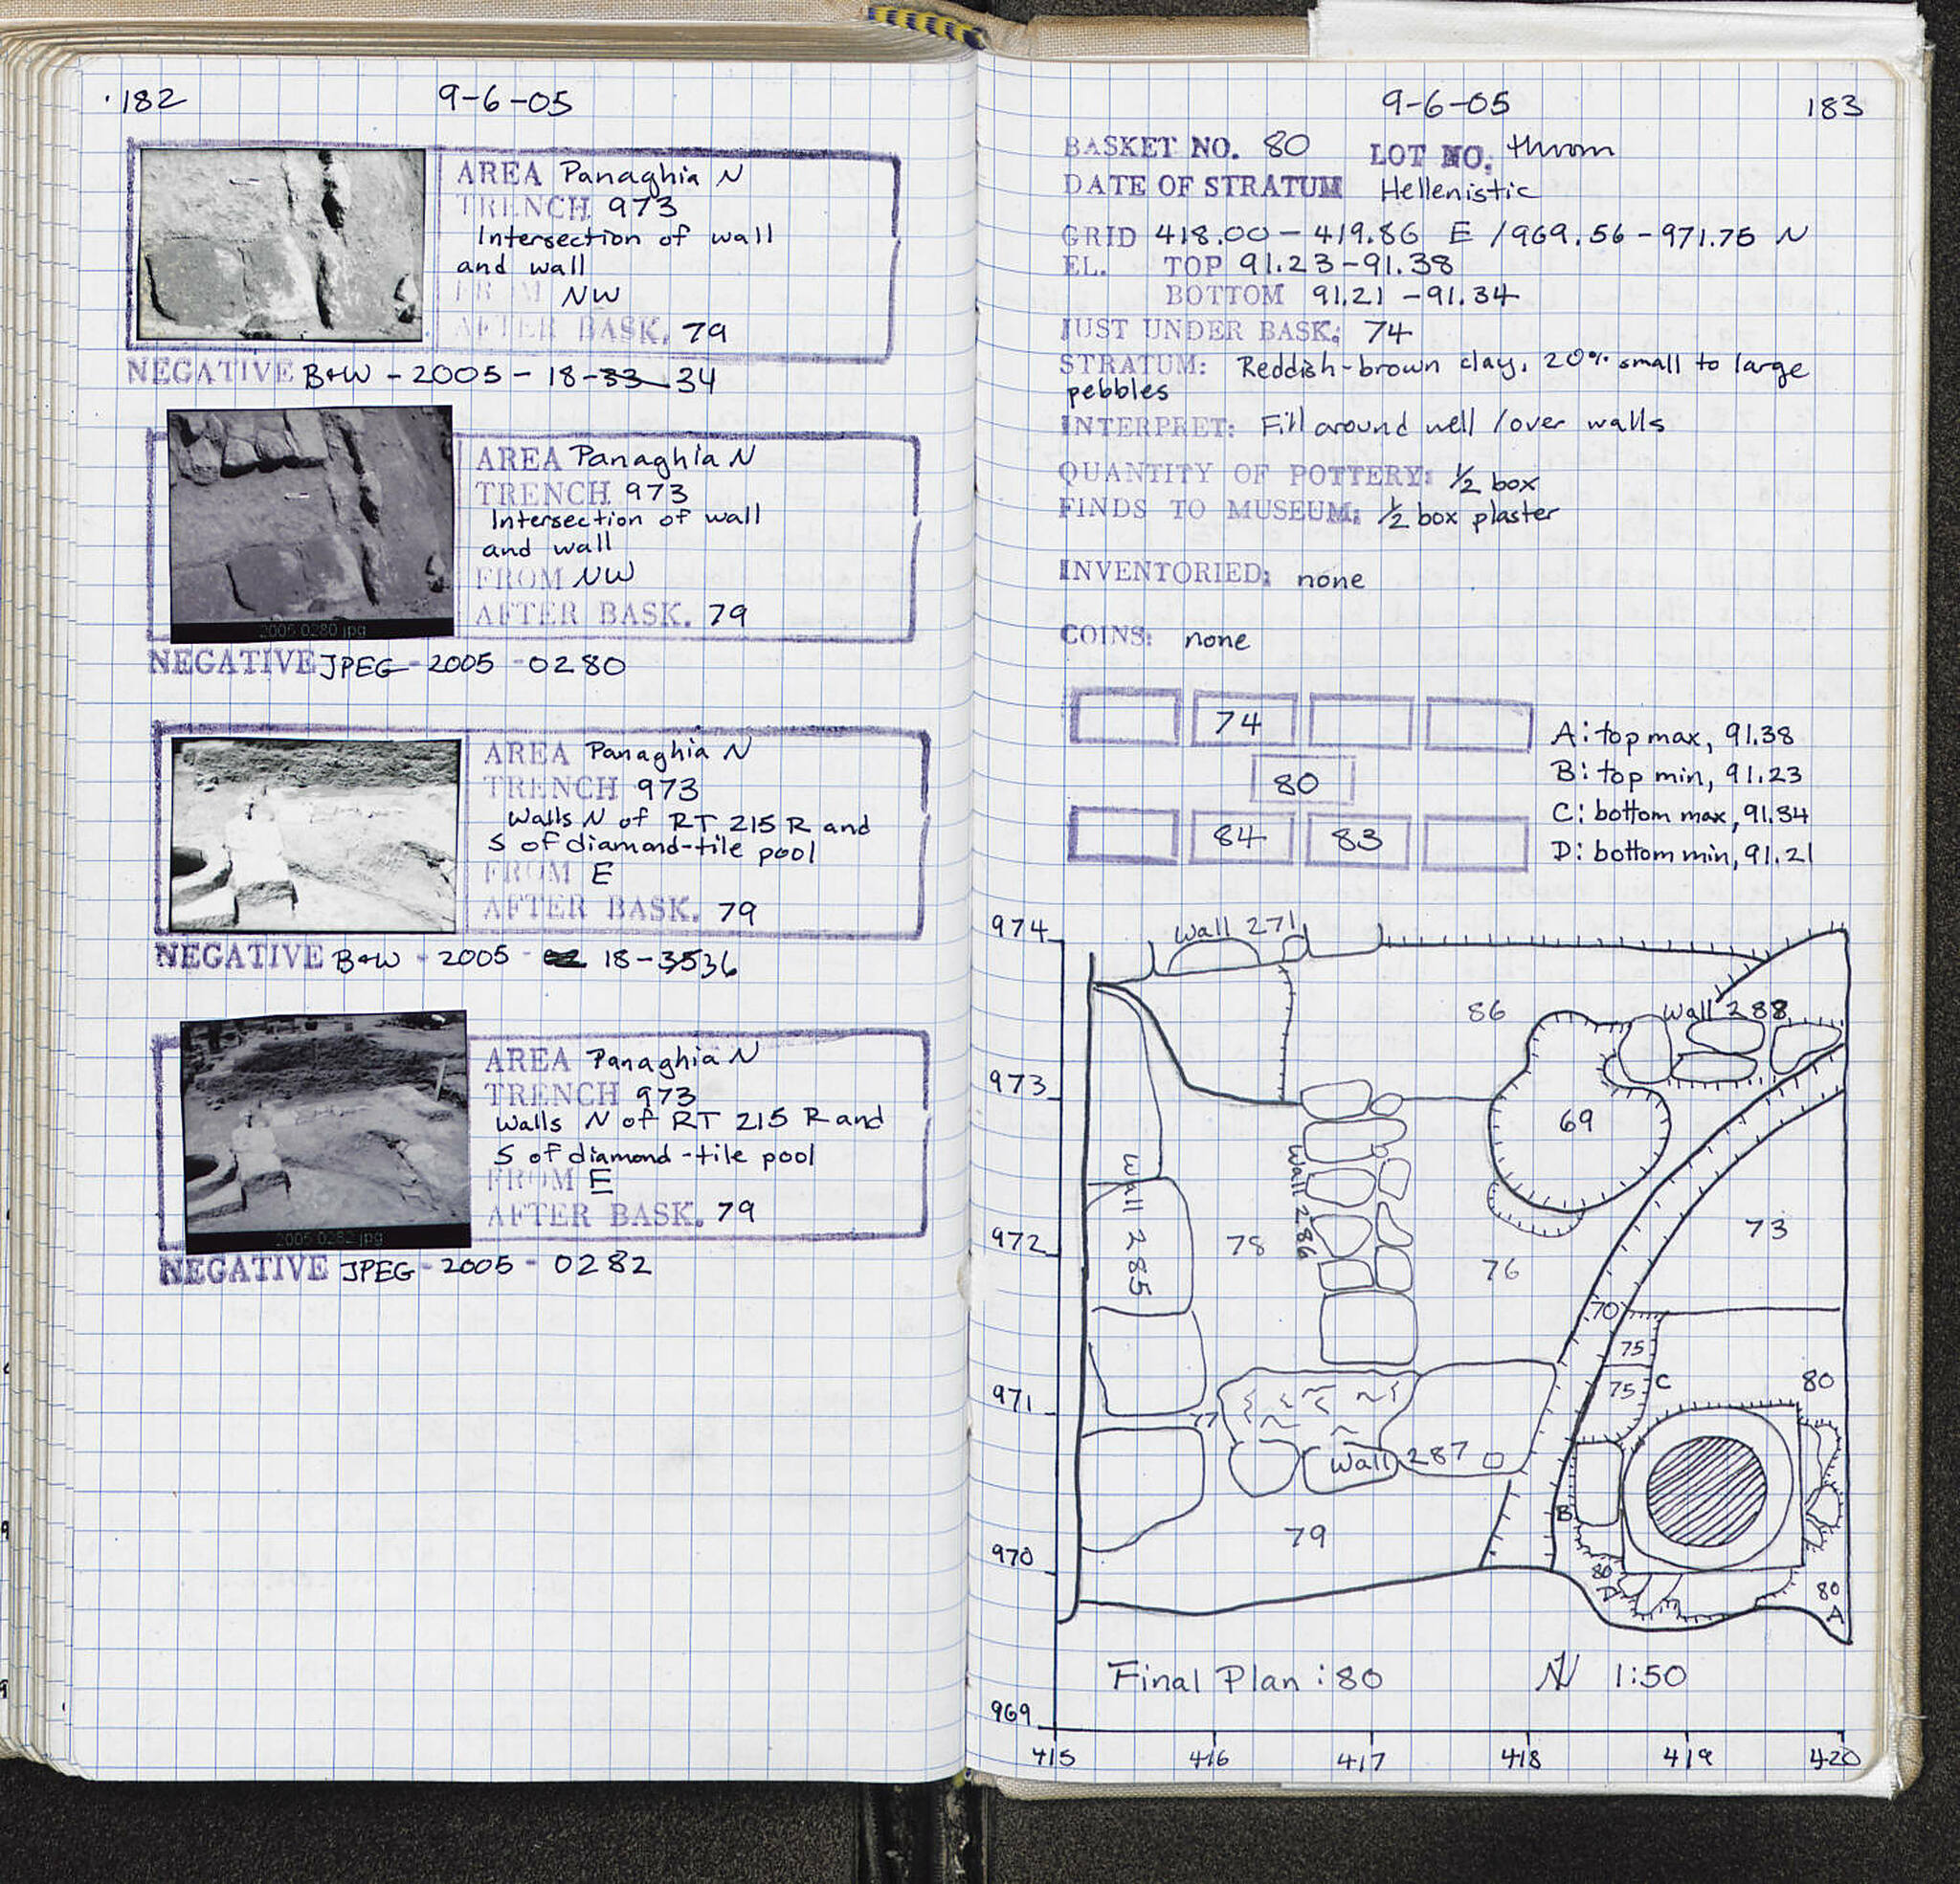 182
9-6-05
AREA Panaghia N
TRENCH 973
Intersection of wall
and wall
FROM NW
AFTER BASK. 79
NEGATIVE B+W - 2005 - 18-33 34
AREA Panaghia N
TRENCH 973
Intersection of wall
and wall
FROM NW
AFTER BASK. 79
2005 0280.jpg
NEGATIVE JPEG - 2005 - 0280
AREA Panaghia N
TRENCH 973
Walls N of RT 215 R and
S of diamond-tile pool
FROM E
AFTER BASK. 79
NEGATIVE B+W - 2005 - 18-3536
AREA Panaghia N
TRENCH 973
Walls N of RT 215 R and
S of diamond-tile pool
FROM E
AFTER BASK. 79
2005 0282.jpg
NEGATIVE JPEG - 2005 - 0282
9-6-05
183
BASKET NO. 80 LOT NO.
DATE OF STRATUM Hellenistic
GRID 418.00 - 419.86 E / 969.56 - 971.75 N
EL. TOP 91.23-91.38
BOTTOM 91.21 - 91.34
JUST UNDER BASK: 74
STRATUM: Reddish-brown clay, 20% small to large
pebbles
INTERPRET: Fill around well / over walls
QUANTITY OF POTTERY: 1/2 box
FINDS TO MUSEUM: 1/2 box plaster
INVENTORIED: none
COINS: none
74
80
84 83
A: top max, 91.38
B: top min, 91.23
C: bottom max, 91.34
D: bottom min, 91.21
974
Wall 271
86
Wall 288
973
69
Wall 285
Wall 286
972
78
76
73
70
75
75
C
80
971
77
Wall 287
B
79
970
80
D
80
A
Final Plan: 80
N 1:50
969
415 416 417 418 419 420